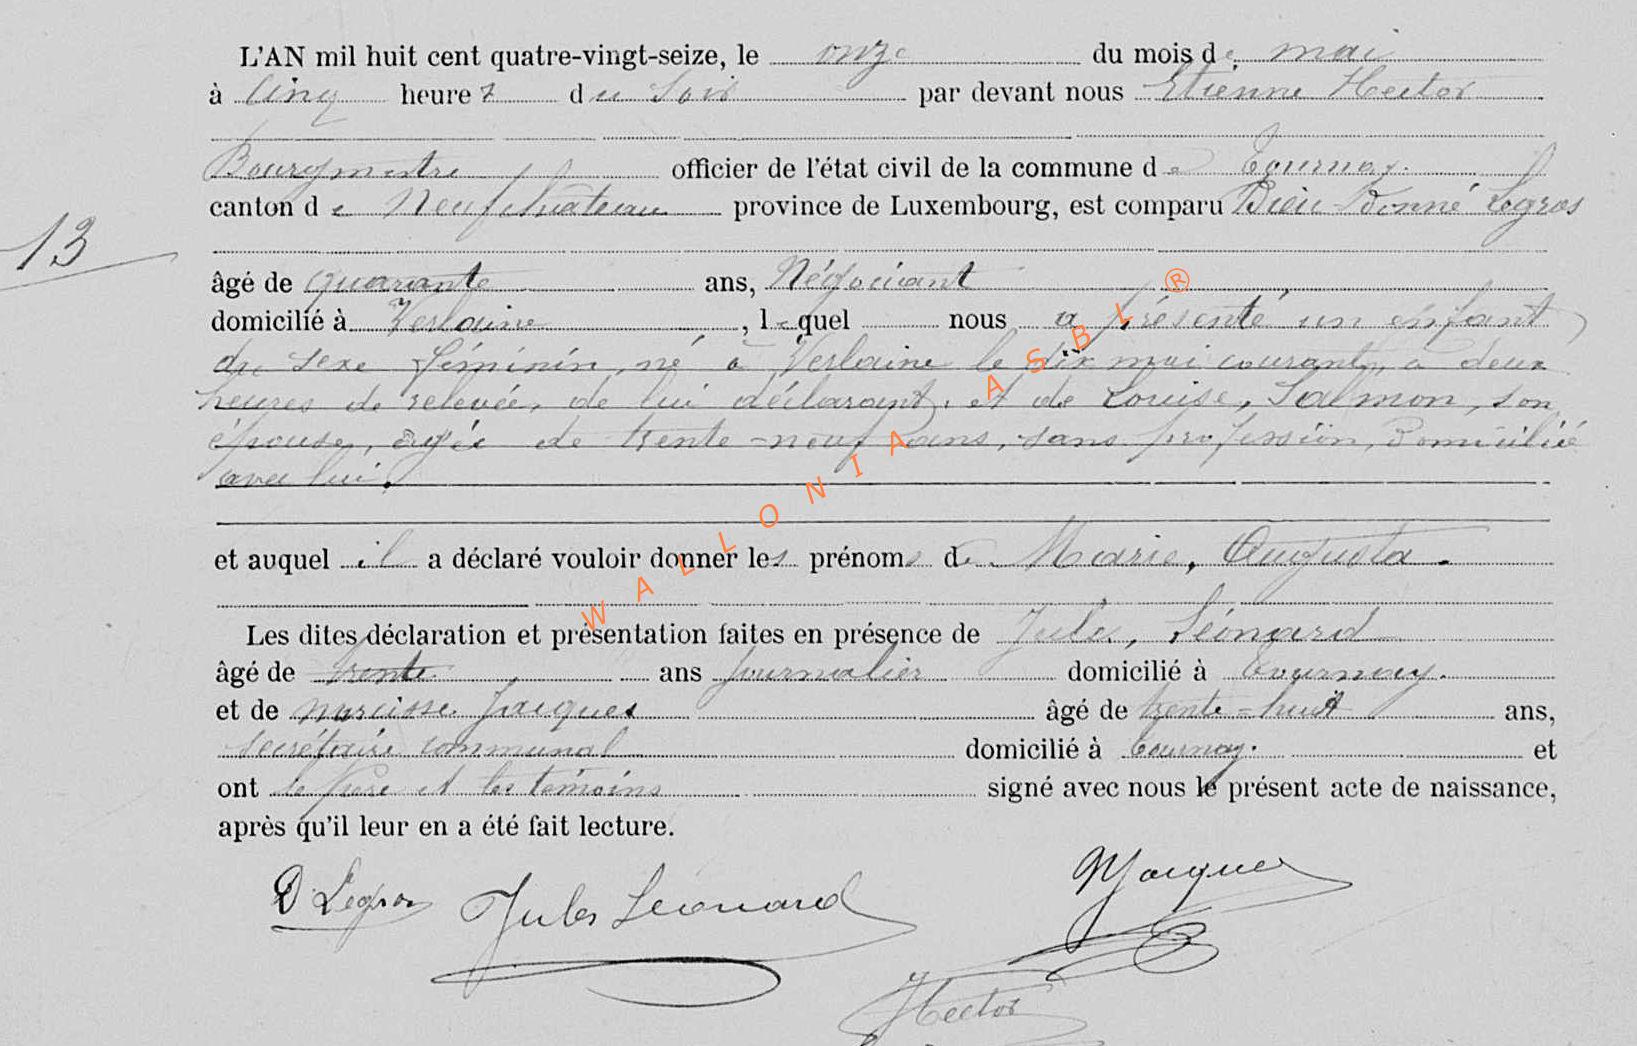 L'AN mil huit cent quatre-vingt-seize, le onze du mois de mai
à cinq heures du soir par devant nous Etienne Hector
Bourgmestre officier de l'état civil de la commune de Tournay.
canton de Neufchâteau province de Luxembourg, est comparu Dieu Donné Legros
13
âgé de quarante ans, Négociant
domicilié à Verlaine, lequel nous a présenté un enfant
du sexe féminin, né à Verlaine le dix mai courant, à deux
heures de relevée, de lui déclarant, et de Louise, Salmon, son
épouse, âgée de trente-neuf ans, sans profession, domicilié
avec lui.
et auquel il a déclaré vouloir donner les prénoms de Marie, Augusta.
Les dites déclaration et présentation faites en présence de Jules, Léonard
âgé de trente ans journalier domicilié à Tournay.
et de Narcisse Jacques âgé de trente-huit ans,
secrétaire communal domicilié à Tournay. et
ont le père et les témoins signé avec nous le présent acte de naissance,
après qu'il leur en a été fait lecture.
D Legros Jules Léonard NJacques
Hector
WALLONIA ASBL ®